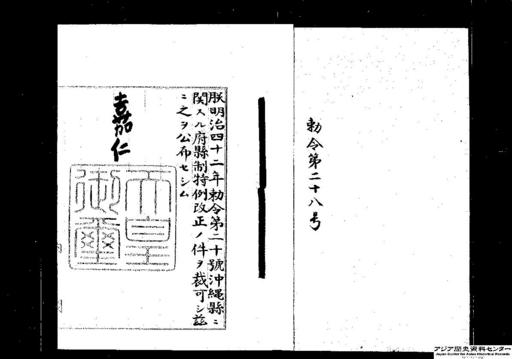 勅令第二十八号
朕明治四十二年勅令第二十號沖縄縣ニ
関スル府縣制特例改正ノ件ヲ裁可シ茲
ニ之ヲ公布セシム
嘉仁
天皇
御璽
アジア歴史資料センター
Japan Center for Asian Historical Records